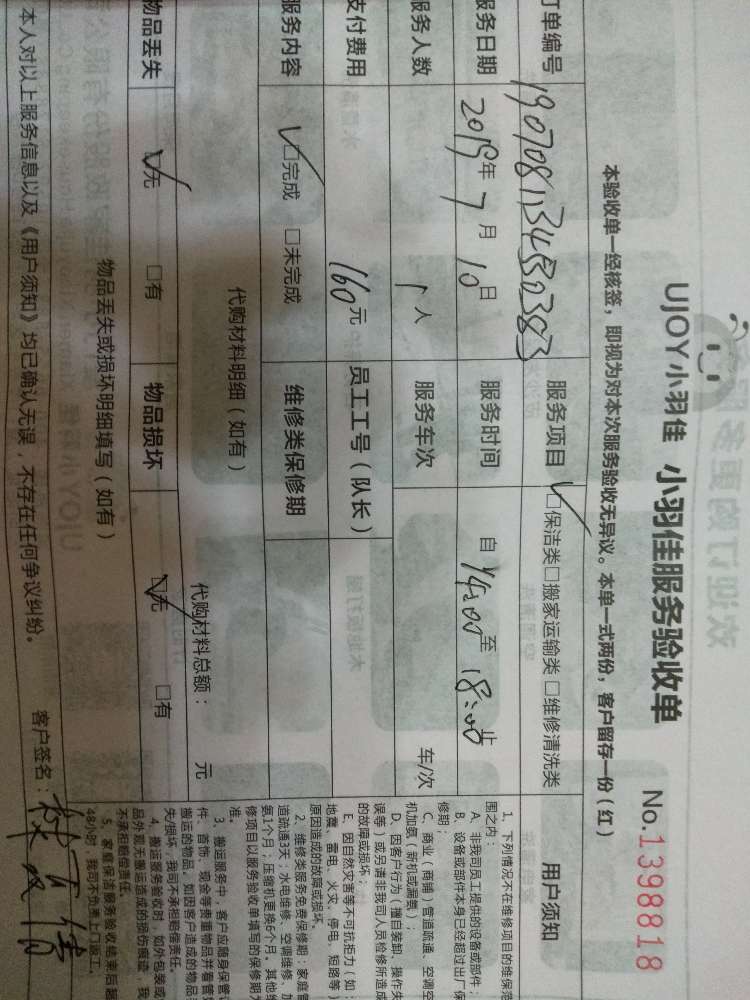 UJOY小羽佳 小羽佳服务验收单
No.1398818
本验收单一经核签，即视为对本次服务验收无异议。本单一式两份，客户留存一份（红）
订单编号
服务项目 保洁类 □搬家运输类 □维修清洗类
服务日期 2019年7月10日
服务时间 自14:00至18:00止
服务人数 1人
服务车次 车/次
支付费用 160元
员工工号（队长）
服务内容 □完成 □未完成
维修类保修期
代购材料明细（如有）
代购材料总额： 元
物品丢失 □无 □有
物品损坏 □无 □有
物品丢失或损坏明细填写（如有）
本人对以上服务信息以及《用户须知》均已确认无误，不存在任何争议纠纷。
客户签名：
用户须知
1、下列情况不在维修项目的维保范
围之内：
A、非我司员工提供的设备或部件；
B、设备或部件本身已经超过出厂保
修期；
C、商业（商铺）管道疏通、空调空
机加氨（新机或漏氨）；
D、因客户行为（擅自装卸、操作失
误等）或另请非我司人员检修所造成
的故障或损坏；
E、因自然灾害等不可抗拒力（如：
地震、雷电、火灾、停电、短路等）
原因造成的故障或损坏。
2、维修类服务免费保修期：家庭管
道疏通3天；水电维修、空调维修、加
氨1个月；压缩机更换6个月，其他维
修项目以服务验收单填写的保修期为
准。
3、搬运服务中，客户应随身保管证
件、首饰、现金等贵重物品并看管好
搬运的物品，如因客户造成的物品
失/损坏，我司不承担赔偿责任。
4、搬运服务验收时，如外包装或
品外观无搬运造成的损伤痕迹，我
不承担赔偿责任。
5、家庭保洁服务验收结束后超
48小时，我司不负责上门返工。